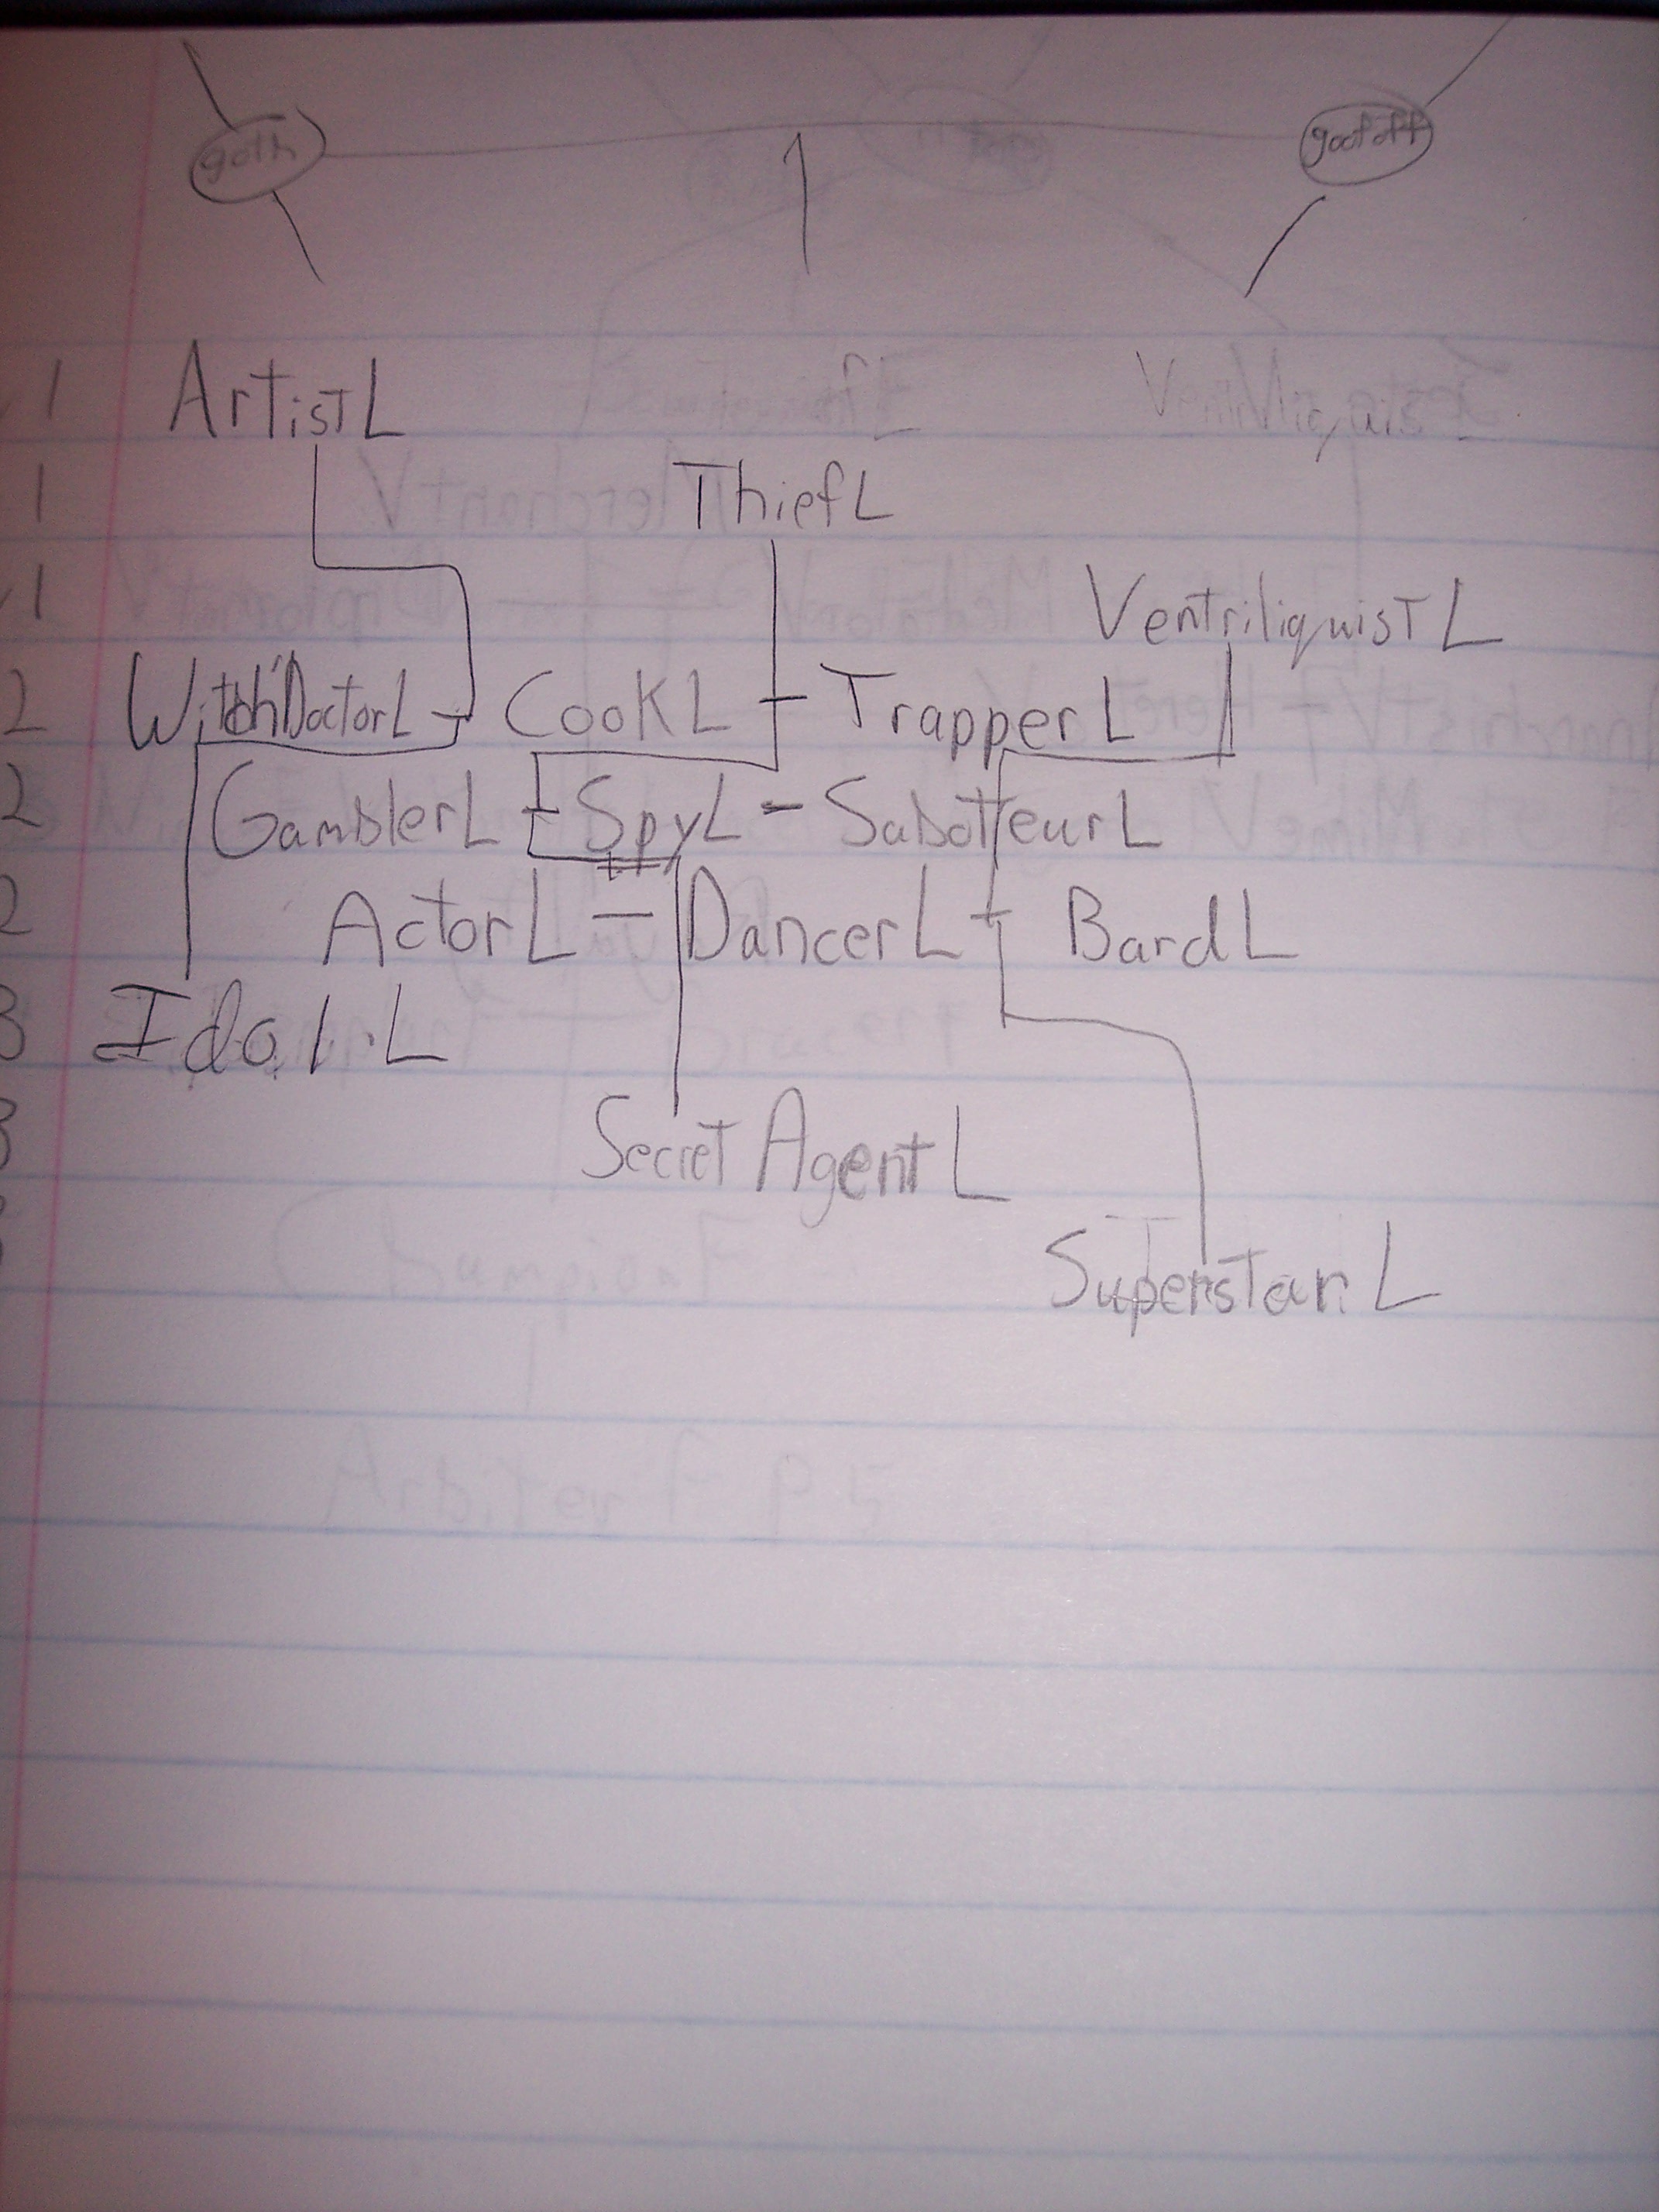 goth goof off
1 Artist L
1 Thief L
1 Ventriliquist L
2 Witch Doctor L - Cook L - Trapper L
2 Gambler L - Spy L - Saboteur L
2 Actor L - Dancer L - Bard L
3 Idol L
3 Secret Agent L
Superstar L